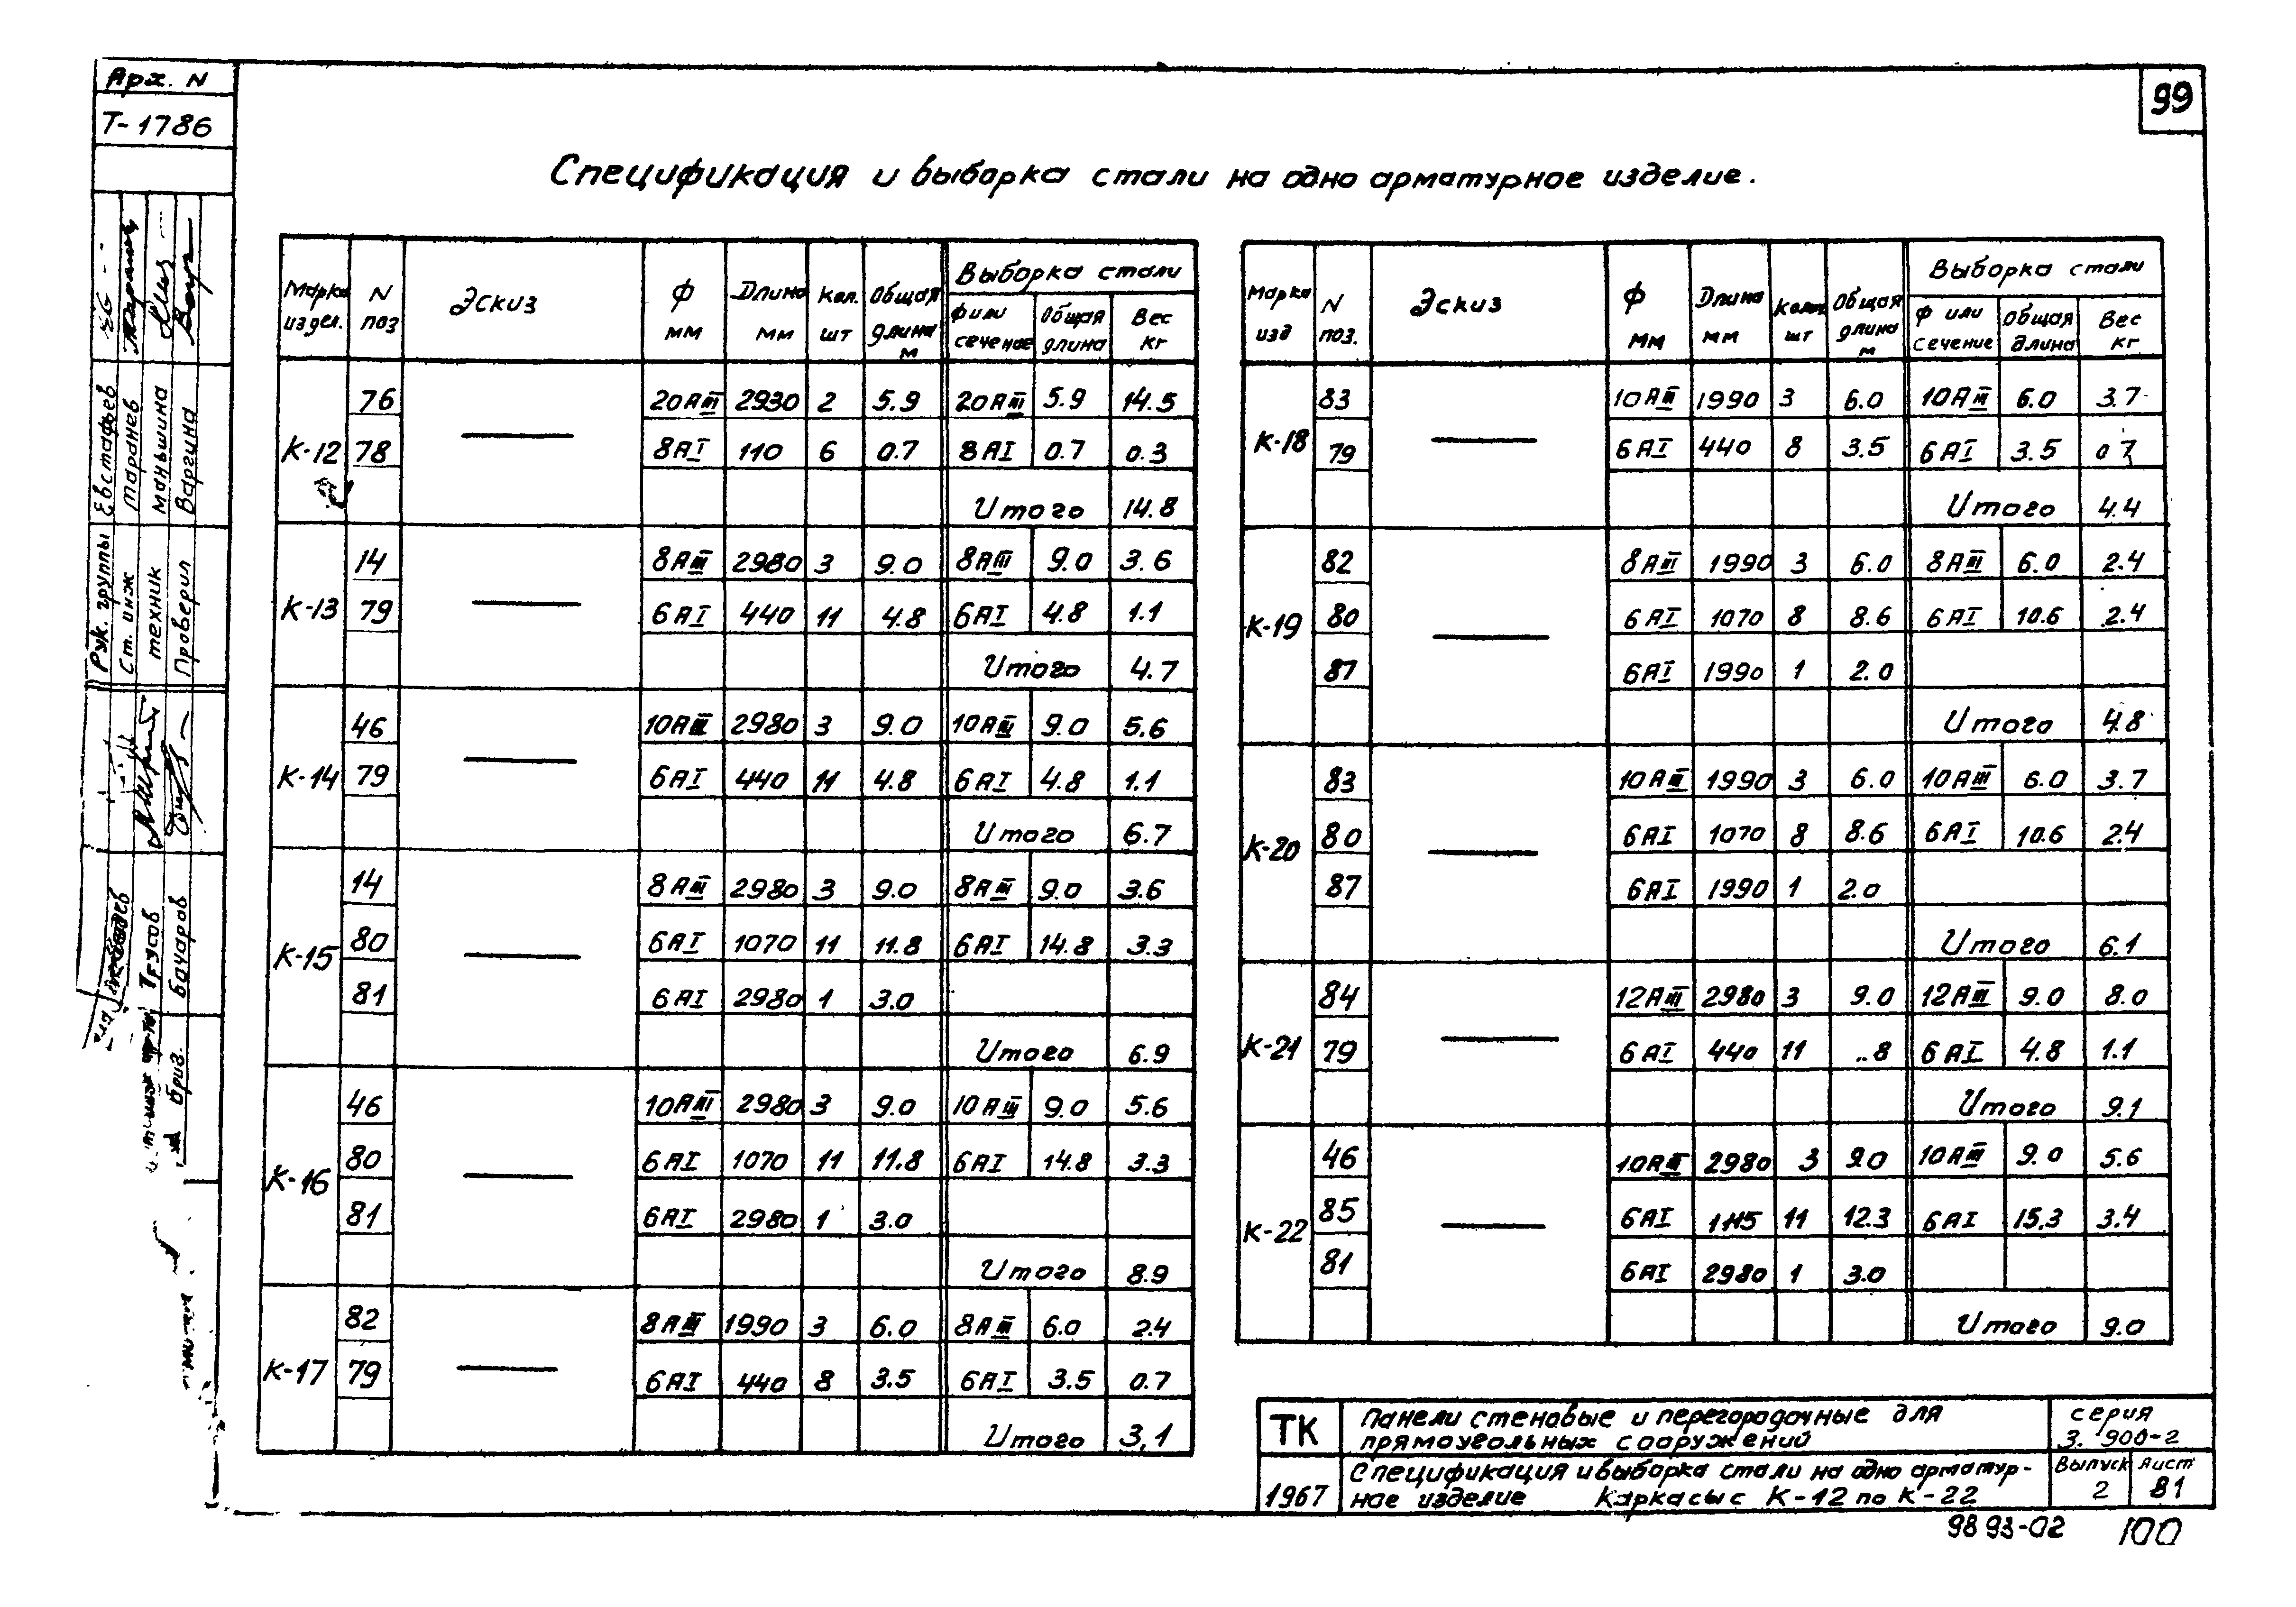 Арх. N
Т-1786
99
Спецификация и выборка стали на одно арматурное изделие.
Марка издел. N поз Эскиз Ф мм Длина мм Кол. шт Общая длина м Выборка стали Ф или сечение Общая длина Вес кг
К-12 76 20АIII 2930 2 5.9 20АIII 5.9 14.5
78 8АI 110 6 0.7 8АI 0.7 0.3
Итого 14.8
К-13 14 8АIII 2980 3 9.0 8АIII 9.0 3.6
79 6АI 440 11 4.8 6АI 4.8 1.1
Итого 4.7
К-14 46 10АIII 2980 3 9.0 10АIII 9.0 5.6
79 6АI 440 11 4.8 6АI 4.8 1.1
Итого 6.7
К-15 14 8АIII 2980 3 9.0 8АIII 9.0 3.6
80 6АI 1070 11 11.8 6АI 14.8 3.3
81 6АI 2980 1 3.0
Итого 6.9
К-16 46 10АIII 2980 3 9.0 10АIII 9.0 5.6
80 6АI 1070 11 11.8 6АI 14.8 3.3
81 6АI 2980 1 3.0
Итого 8.9
К-17 82 8АIII 1990 3 6.0 8АIII 6.0 2.4
79 6АI 440 8 3.5 6АI 3.5 0.7
Итого 3,1
Марка изд N поз. Эскиз Ф мм Длина мм Колич шт Общая длина м Выборка стали Ф или сечение Общая длина Вес кг
К-18 83 10АIII 1990 3 6.0 10АIII 6.0 3.7
79 6АI 440 8 3.5 6АI 3.5 0 7
Итого 4.4
К-19 82 8АIII 1990 3 6.0 8АIII 6.0 2.4
80 6АI 1070 8 8.6 6АI 10.6 2.4
87 6АI 1990 1 2.0
Итого 4.8
К-20 83 10АIII 1990 3 6.0 10АIII 6.0 3.7
80 6АI 1070 8 8.6 6АI 10.6 2.4
87 6АI 1990 1 2.0
Итого 6.1
К-21 84 12АIII 2980 3 9.0 12АIII 9.0 8.0
79 6АI 440 11 ..8 6АI 4.8 1.1
Итого 9.1
К-22 46 10АIII 2980 3 9.0 10АIII 9.0 5.6
85 6АI 1115 11 12.3 6АI 15.3 3.4
81 6АI 2980 1 3.0
Итого 9.0
Рук. группы Евстафьев
Ст. инж Таранев
техник Маньшина
Проверил Варгина
Трусов
бриз. Бочаров
ТК
1967
Панели стеновые и перегородочные для
прямоугольных сооружений
серия
3. 900-2
Спецификация и выборка стали на одно арматур-
ное изделие Каркасы с К-12 по К-22
Выпуск
2
лист
81
9893-02
100